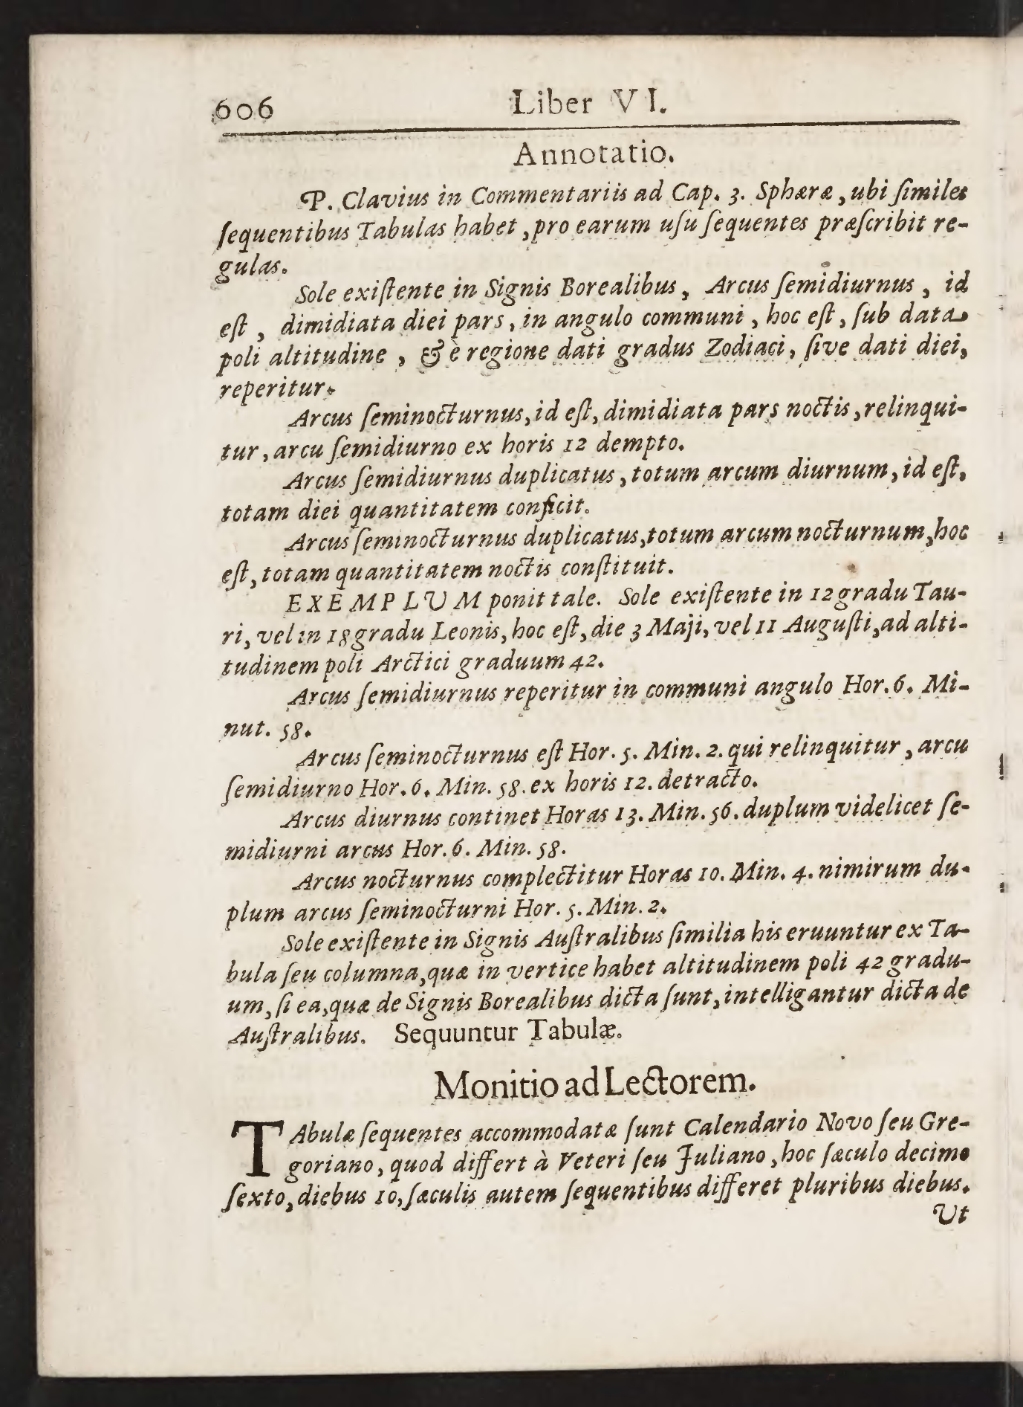 606 Liber VI.
Annotatio.
P. Clavius in Commentariis ad Cap. 3. Sphæræ, ubi ſimiles
ſequentibus Tabulas habet, pro earum uſu ſequentes præſcribit re-
gulas.
Sole exiſtente in Signis Borealibus, Arcus ſemidiurnus, id
eſt, dimidiata diei pars, in angulo communi, hoc eſt, ſub data
poli altitudine, & è regione dati gradus Zodiaci, ſive dati diei,
reperitur.
Arcus ſeminocturnus, id eſt, dimidiata pars noctis, relinqui-
tur, arcu ſemidiurno ex horis 12 dempto.
Arcus ſemidiurnus duplicatus, totum arcum diurnum, id eſt,
totam diei quantitatem conficit.
Arcus ſeminocturnus duplicatus, totum arcum nocturnum, hoc
eſt, totam quantitatem noctis conſtituit.
EXEMPLUM ponit tale. Sole exiſtente in 12 gradu Tau-
ri, vel in 18 gradu Leonis, hoc eſt, die 3 Maji, vel 11 Auguſti, ad alti-
tudinem poli Arctici graduum 42.
Arcus ſemidiurnus reperitur in communi angulo Hor. 6. Mi-
nut. 58.
Arcus ſeminocturnus eſt Hor. 5. Min. 2. qui relinquitur, arcu
ſemidiurno Hor. 6. Min. 58. ex horis 12. detracto.
Arcus diurnus continet Horas 13. Min. 56. duplum videlicet ſe-
midiurni arcus Hor. 6. Min. 58.
Arcus nocturnus complectitur Horas 10. Min. 4. nimirum du-
plum arcus ſeminocturni Hor. 5. Min. 2.
Sole exiſtente in Signis Auſtralibus ſimilia his eruuntur ex Ta-
bula ſeu columna, quæ in vertice habet altitudinem poli 42 gradu-
um, ſi ea, quæ de Signis Borealibus dicta ſunt, intelligantur dicta de
Auſtralibus. Sequuntur Tabulæ.
Monitio ad Lectorem.
TAbulæ ſequentes accommodatæ ſunt Calendario Novo ſeu Gre-
goriano, quod differt à Veteri ſeu Juliano, hoc ſæculo decimo
ſexto, diebus 10, ſæculis autem ſequentibus differet pluribus diebus.
Ut